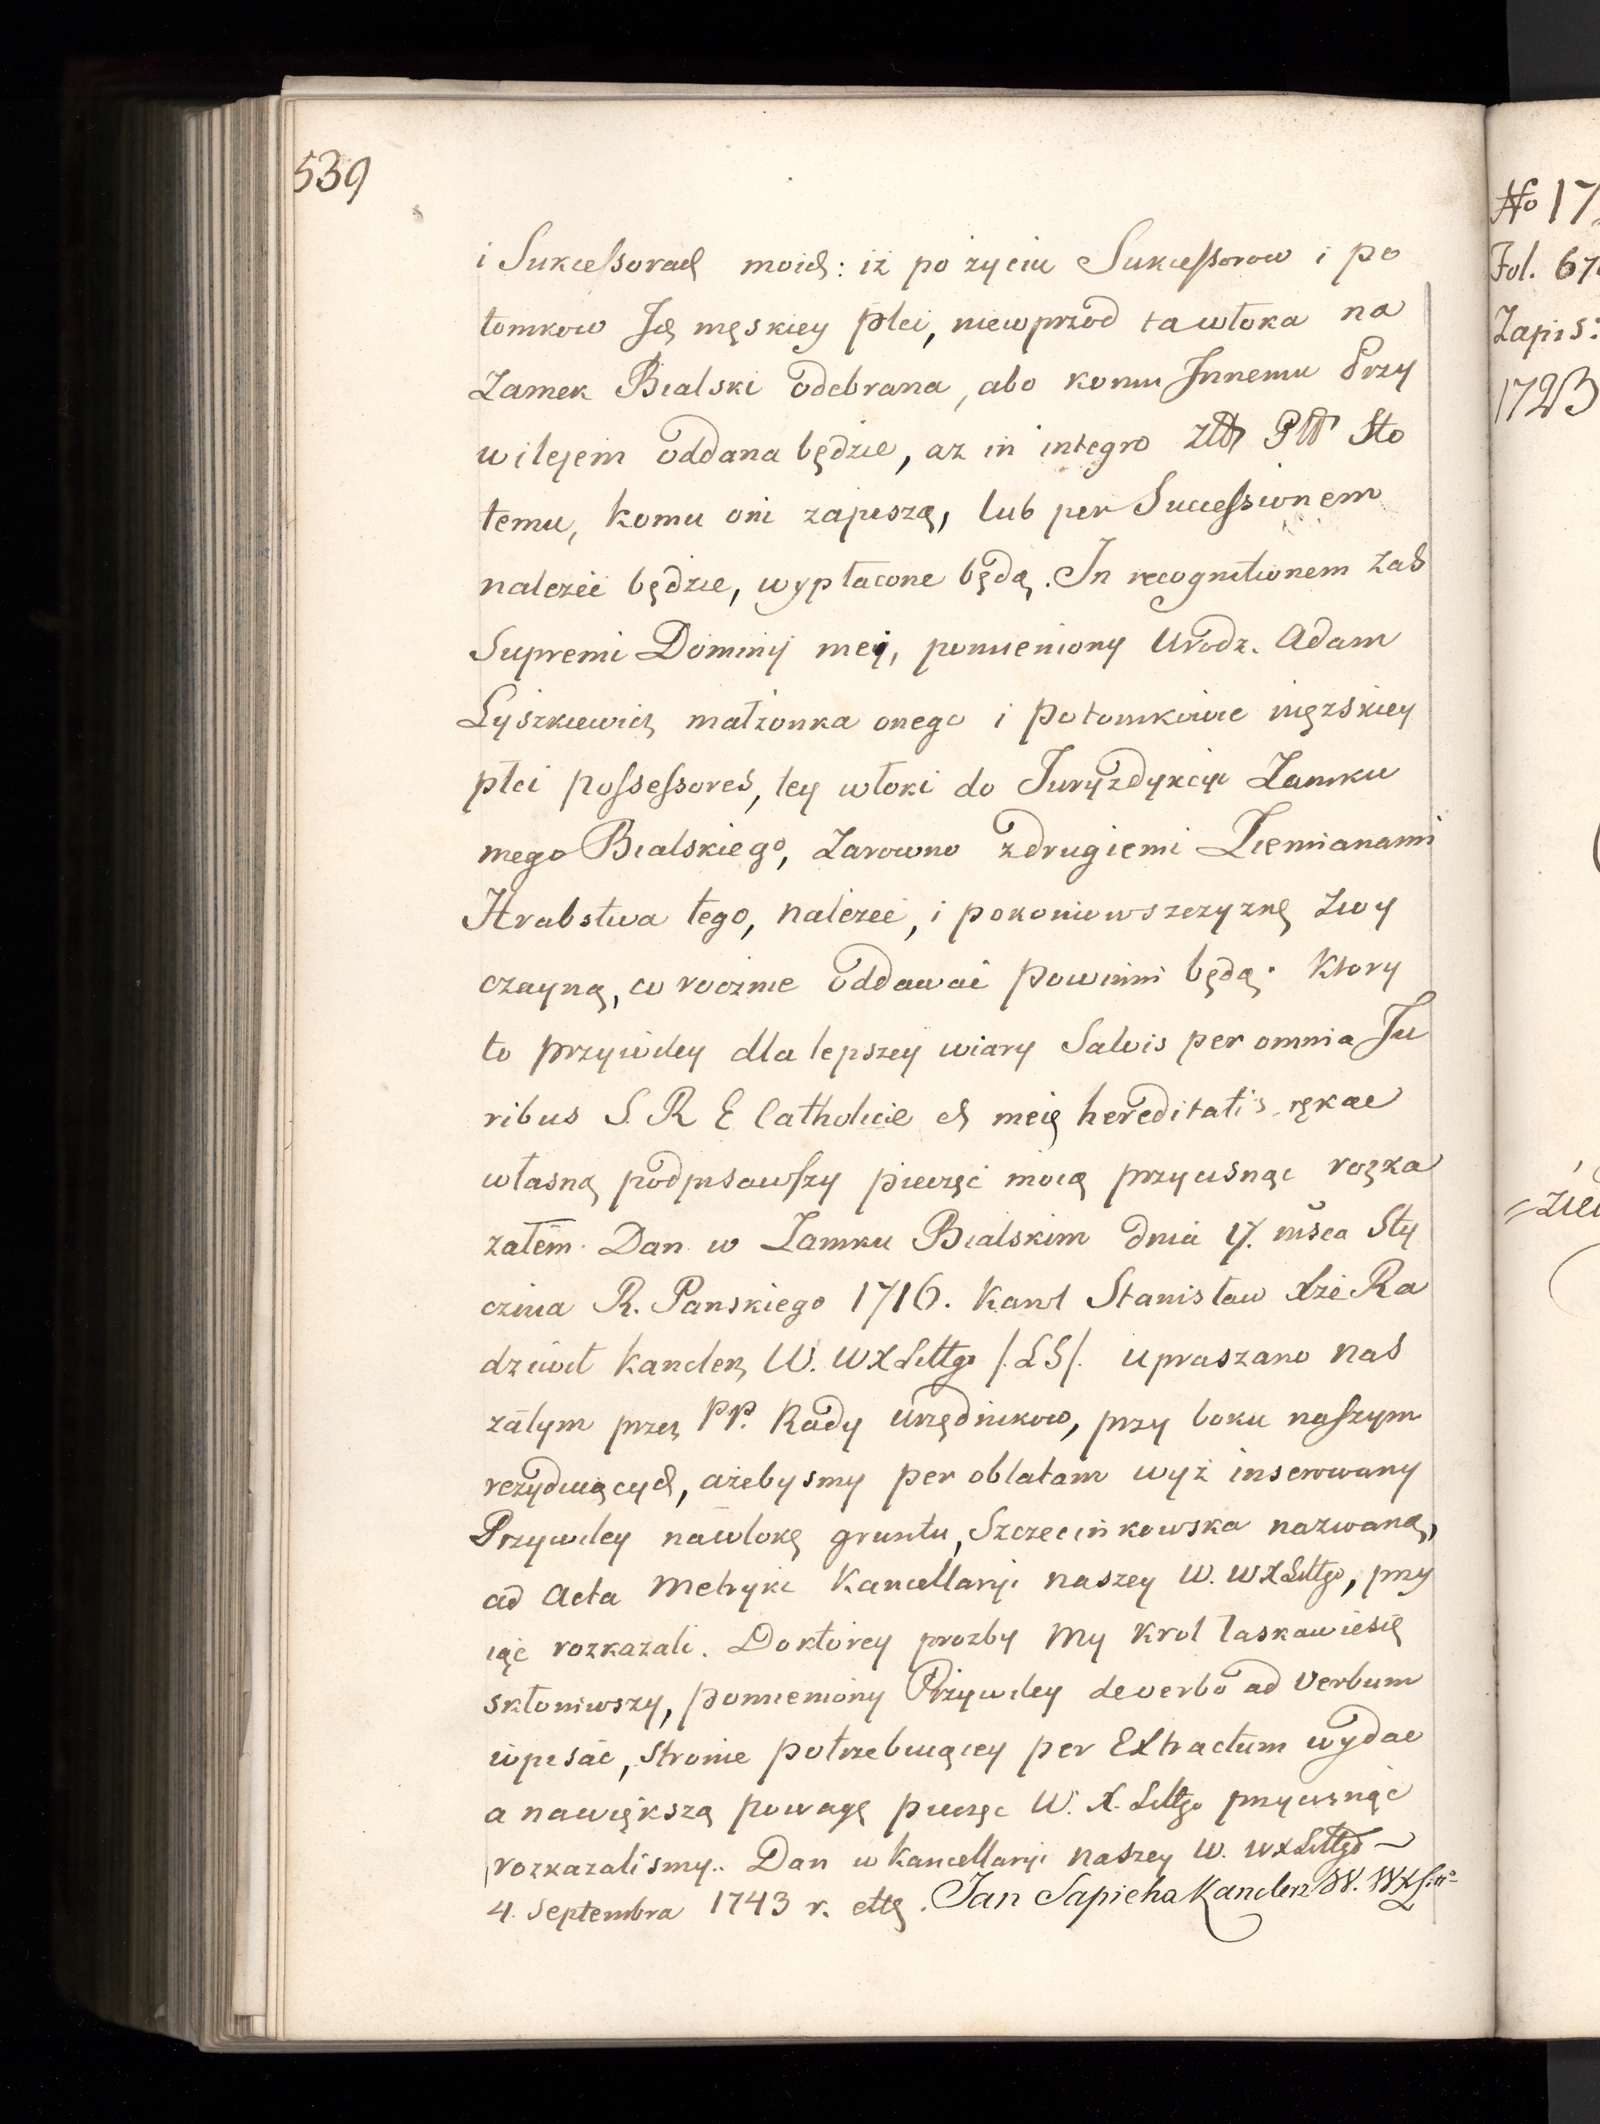 539
i Sukcessorach moich: iż po życiu Sukcessorow i po
tomkow Ich męskiey płci, niewprzod ta włoka na
Zamek Bialski odebrana, abo komu Innemu Przy
wilejem oddana będzie, az in integro Złł Płł Sto
temu, komu oni zapiszą, lub per Successionem
nalezeć będzie, wypłacone będą. In recognitionem zaś
Supremi Dominij mei, pomieniony Urodz. Adam
Łyszkiewicz małżonka onego i potomkowie męzskiey
płci possessores, tey włoki do Juryzdykcyi Zamku
mego Bialskiego, zarowno z drugiemi Ziemianami
Hrabstwa tego, nalezeć, i pokoniowszczyznę zwy
czayną, co rocznie oddawać powinni będą. Ktory
to przywiley dla lepszey wiary Salvis per omnia Ju
ribus S. R E Catholicæ et meis hereditatis ręką
własną podpisawszy pieczęć moią przycisnąc rozka
załem. Dan w Zamku Bialskim dnia 17. mśca Sty
cznia R. Panskiego 1716. Karol Stanisław Xże Ra
dziwił Kanclerz W. WXLittgo /.LS/. upraszano nas
zatym przez PP. Rady Urzędnikow, przy boku naszym
rezyduiących, ażebysmy per oblatam wyż inserowany
Przywiley na włokę gruntu, Szczecinkowska nazwaną,
ad Acta Metryki Kancellaryi naszey W. WXLittgo, przy
iąć rozkazali. Do ktorey prozby My Krol łaskawie się
skłoniwszy, pomieniony Przywiley de verbo ad verbum
wpisać, stronie potrzebuiącey per Extractum wydać
a na większą powagę pieczęc W. X. Littgo przycisnąć
rozkazalismy.. Dan w Kancellaryi naszey W. WXLittgo
4. Septembra 1743 r. ettc. Jan Sapieha Kanclerz W. WXLitto
No 17
Fol. 67
Zapis:
1723